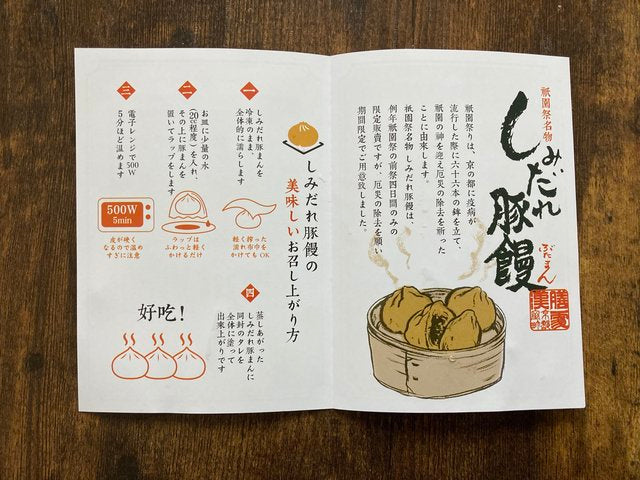 祇園祭名物
しみだれ豚饅
ぶたまん
祇園祭りは、京の都に疫病が
流行した際に六十六本の鉾を立て、
祇園の神を迎え厄災の除去を祈った
ことに由来します。
祇園祭名物 しみだれ豚饅は、
例年祇園祭の前祭四日間のみの
限定販売ですが、厄災の除去を願い
期間限定でご用意致しました。
しみだれ豚饅の
美味しいお召し上がり方
一
しみだれ豚まんを
冷凍のまま
全体的に濡らします
軽く搾った
濡れ布巾を
かけてもOK
二
お皿に少量の水
(20cc程度)を入れ、
その上に豚まんを
置いてラップをします
ラップは
ふわっと軽く
かけるだけ
三
電子レンジで500W
5分ほど温めます
500W
5min
皮が硬く
なるので温め
すぎに注意
四
蒸しあがった
しみだれ豚まんに
同封のタレを
全体に塗って
出来上がりです
好吃!